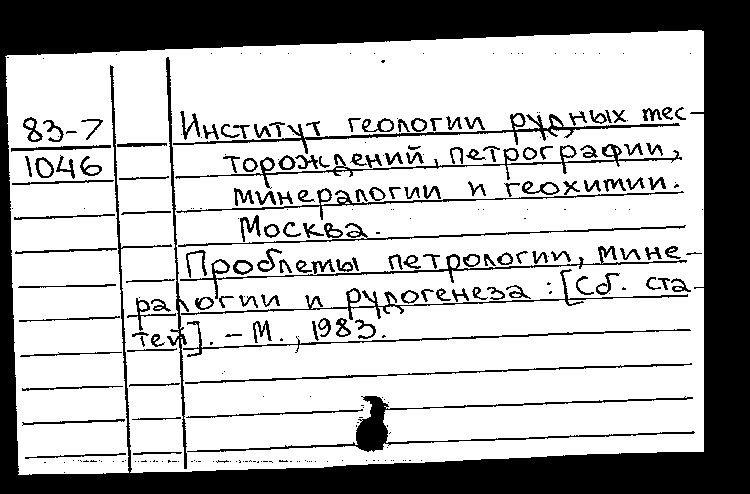 83-7 Институт геологии рудных мес-
1046 торождений, петрографии,
минералогии и геохимии.
Москва.
Проблемы петрологии, мине-
ралогии и рудогенеза : [Сб. ста-
тей]. – М., 1983.